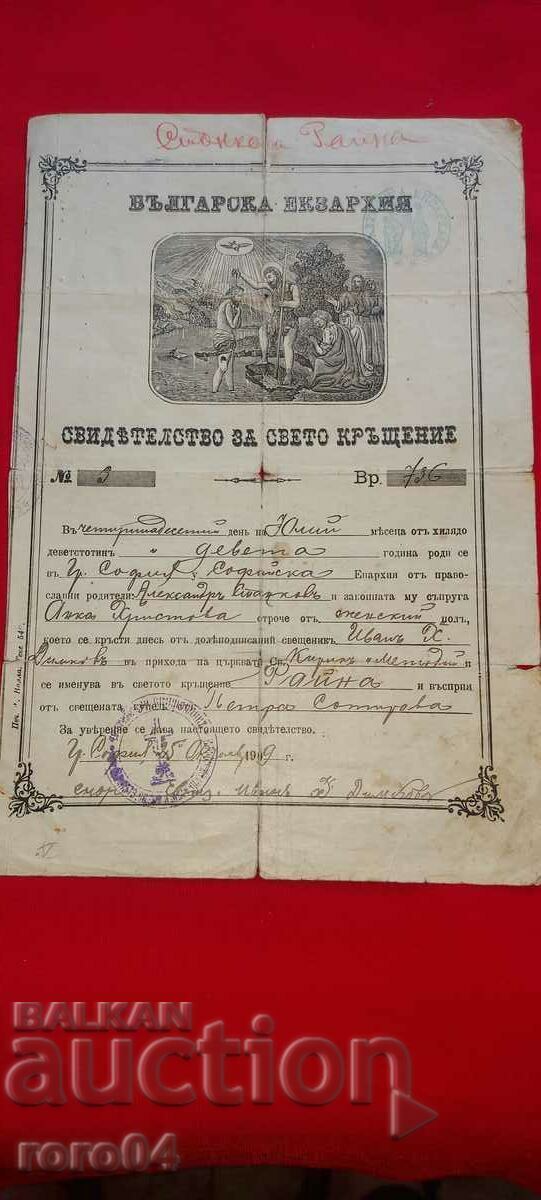 Стонкова Райна
БЪЛГАРСКА ЕКЗАРХИЯ
СВИДѢТЕЛСТВО ЗА СВЕТО КРЪЩЕНИЕ
№ 3 Вр. 736
Въ четиринадесетий день на Юлий мѣсеца отъ хилядо
деветстотинъ " девета година роди се
въ Гр. София, Софийска Епархия отъ право-
славни родители: Александръ Станковъ и законната му съпруга
Анка Христова отроче отъ женский полъ,
което се кръсти днесь отъ долѣподписаний свещеникъ Иванъ Х.
Димковъ въ прихода на църквата Св. Кирилъ и Методий и
се именува въ светото кръщение Райна и въсприе
отъ свещената купель Петра Сотирова
За увѣрение се дава настоящето свидѣтелство.
Гр. София 5 1909 г.
Иванъ Х Димковъ
BALKAN
auction
roro04